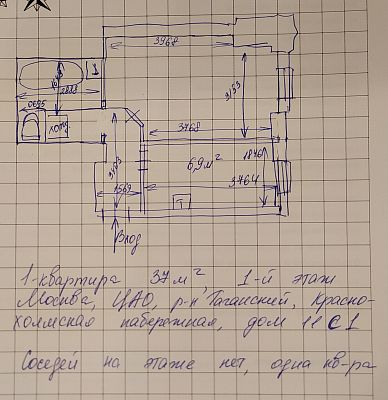 3968
1
1888
0690
холод.
3153
3768
3153
6,9 м²
1846
3764
1569
Т
Вход
1-квартира 37 м², 1-й этаж
Москва, ЦАО, р-н Таганский, Красно-
холмская набережная, дом 11 С 1
Соседей на этаже нет, одна кв-ра